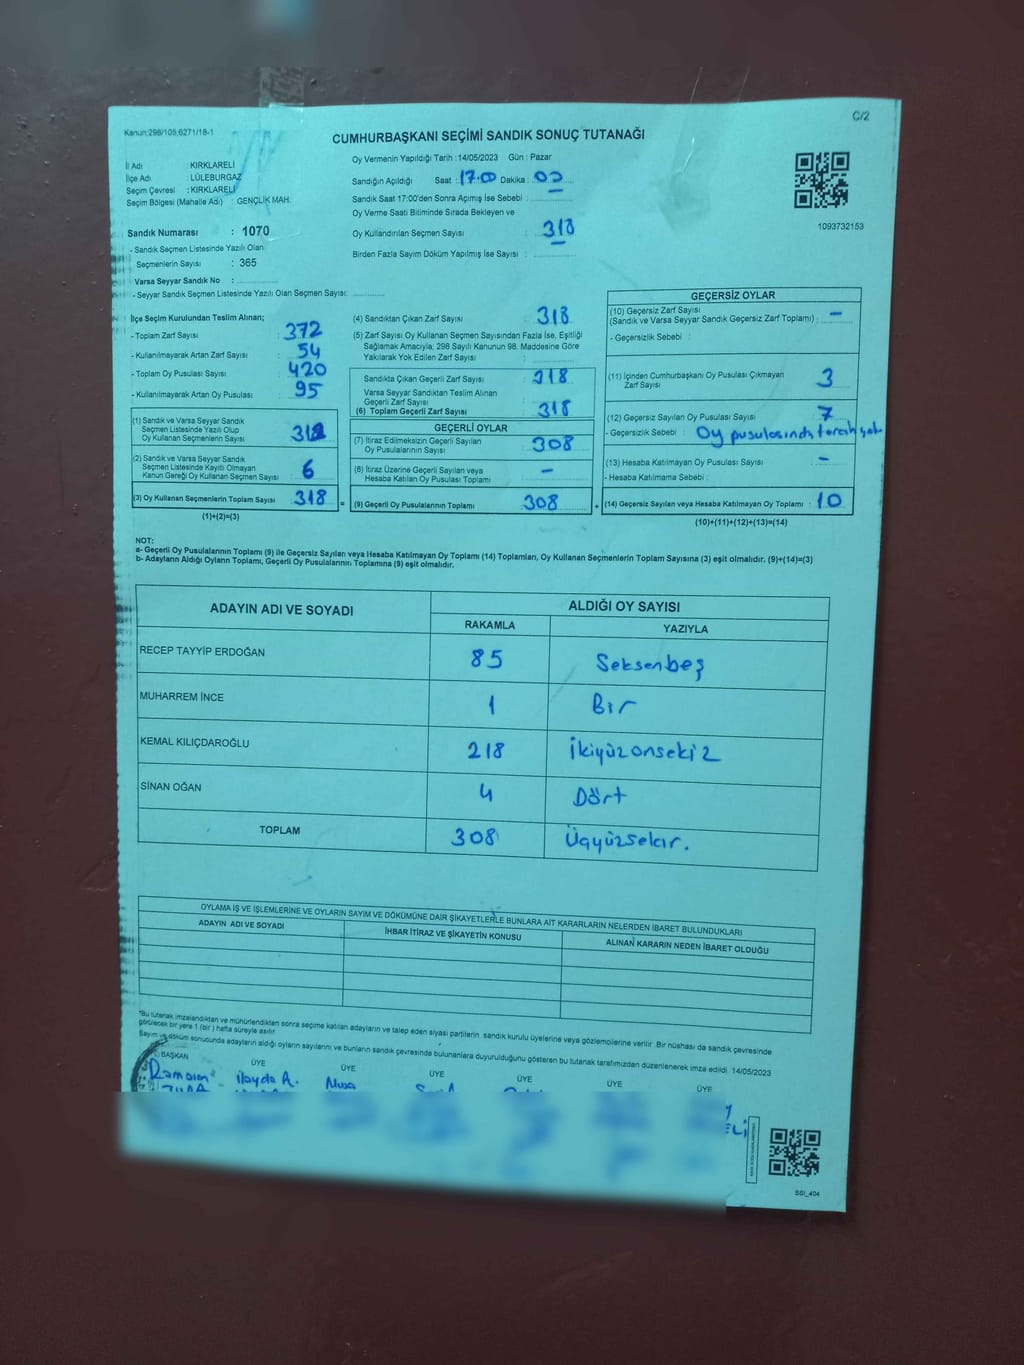 C/2
Kanun:298/105,6271/18-1
CUMHURBAŞKANI SEÇİMİ SANDIK SONUÇ TUTANAĞI
İl Adı : KIRKLARELİ
İlçe Adı : LÜLEBURGAZ
Seçim Çevresi : KIRKLARELİ
Seçim Bölgesi (Mahalle Adı) : GENÇLİK MAH.
Sandık Numarası : 1070
- Sandık Seçmen Listesinde Yazılı Olan
Seçmenlerin Sayısı : 365
Varsa Seyyar Sandık No :
- Seyyar Sandık Seçmen Listesinde Yazılı Olan Seçmen Sayısı:
Oy Vermenin Yapıldığı Tarih :14/05/2023 Gün : Pazar
Sandığın Açıldığı Saat :17.00 Dakika : 00
Sandık Saat 17:00'den Sonra Açılmış İse Sebebi :
Oy Verme Saati Bitiminde Sırada Bekleyen ve
Oy Kullandırılan Seçmen Sayısı : 318
Birden Fazla Sayım Döküm Yapılmış İse Sayısı :
1093732153
İlçe Seçim Kurulundan Teslim Alınan;
- Toplam Zarf Sayısı : 372
- Kullanılmayarak Artan Zarf Sayısı : 54
- Toplam Oy Pusulası Sayısı : 420
- Kullanılmayarak Artan Oy Pusulası : 95
(1) Sandık ve Varsa Seyyar Sandık
Seçmen Listesinde Yazılı Olup
Oy Kullanan Seçmenlerin Sayısı : 312
(2) Sandık ve Varsa Seyyar Sandık
Seçmen Listesinde Kayıtlı Olmayan
Kanun Gereği Oy Kullanan Seçmen Sayısı : 6
(3) Oy Kullanan Seçmenlerin Toplam Sayısı : 318 =
(1)+(2)=(3)
(4) Sandıktan Çıkan Zarf Sayısı : 318
(5) Zarf Sayısı Oy Kullanan Seçmen Sayısından Fazla İse, Eşitliği
Sağlamak Amacıyla, 298 Sayılı Kanunun 98. Maddesine Göre
Yakılarak Yok Edilen Zarf Sayısı :
Sandıkta Çıkan Geçerli Zarf Sayısı : 318
Varsa Seyyar Sandıktan Teslim Alınan
Geçerli Zarf Sayısı :
(6) Toplam Geçerli Zarf Sayısı : 318
GEÇERLİ OYLAR
(7) İtiraz Edilmeksizin Geçerli Sayılan
Oy Pusulalarının Sayısı : 308
(8) İtiraz Üzerine Geçerli Sayılan veya
Hesaba Katılan Oy Pusulası Toplamı : –
(9) Geçerli Oy Pusulalarının Toplamı : 308 +
GEÇERSİZ OYLAR
(10) Geçersiz Zarf Sayısı
(Sandık ve Varsa Seyyar Sandık Geçersiz Zarf Toplamı) : –
- Geçersizlik Sebebi :
(11) İçinden Cumhurbaşkanı Oy Pusulası Çıkmayan
Zarf Sayısı : 3
(12) Geçersiz Sayılan Oy Pusulası Sayısı : 7
- Geçersizlik Sebebi : Oy pusulasında tercih yok
(13) Hesaba Katılmayan Oy Pusulası Sayısı : –
- Hesaba Katılmama Sebebi :
(14) Geçersiz Sayılan veya Hesaba Katılmayan Oy Toplamı : 10
(10)+(11)+(12)+(13)=(14)
NOT:
a- Geçerli Oy Pusulalarının Toplamı (9) ile Geçersiz Sayılan veya Hesaba Katılmayan Oy Toplamı (14) Toplamları, Oy Kullanan Seçmenlerin Toplam Sayısına (3) eşit olmalıdır. (9)+(14)=(3)
b- Adayların Aldığı Oyların Toplamı, Geçerli Oy Pusulalarının Toplamına (9) eşit olmalıdır.
ADAYIN ADI VE SOYADI ALDIĞI OY SAYISI
RAKAMLA YAZIYLA
RECEP TAYYİP ERDOĞAN 85 Seksenbeş
MUHARREM İNCE 1 Bir
KEMAL KILIÇDAROĞLU 218 İkiyüzonsekiz
SİNAN OĞAN 4 Dört
TOPLAM 308 Üçyüzsekiz.
OYLAMA İŞ VE İŞLEMLERİNE VE OYLARIN SAYIM VE DÖKÜMÜNE DAİR ŞİKAYETLERLE BUNLARA AİT KARARLARIN NELERDEN İBARET BULUNDUKLARI
ADAYIN ADI VE SOYADI İHBAR İTİRAZ VE ŞİKAYETİN KONUSU ALINAN KARARIN NEDEN İBARET OLDUĞU
*Bu tutanak imzalandıktan ve mühürlendikten sonra seçime katılan adayların ve talep eden siyasi partilerin sandık kurulu üyelerine veya gözlemcilerine verilir. Bir nüshası da sandık çevresinde
görülecek bir yere 1 (bir) hafta süreyle asılır.
Sayım ve döküm sonucunda adayların aldığı oyların sayılarını ve bunların sandık çevresinde bulunanlara duyurulduğunu gösteren bu tutanak tarafımızdan düzenlenerek imza edildi. 14/05/2023
BAŞKAN ÜYE ÜYE ÜYE ÜYE ÜYE ÜYE
Ramazan İlayda A. Musa
SSI_404